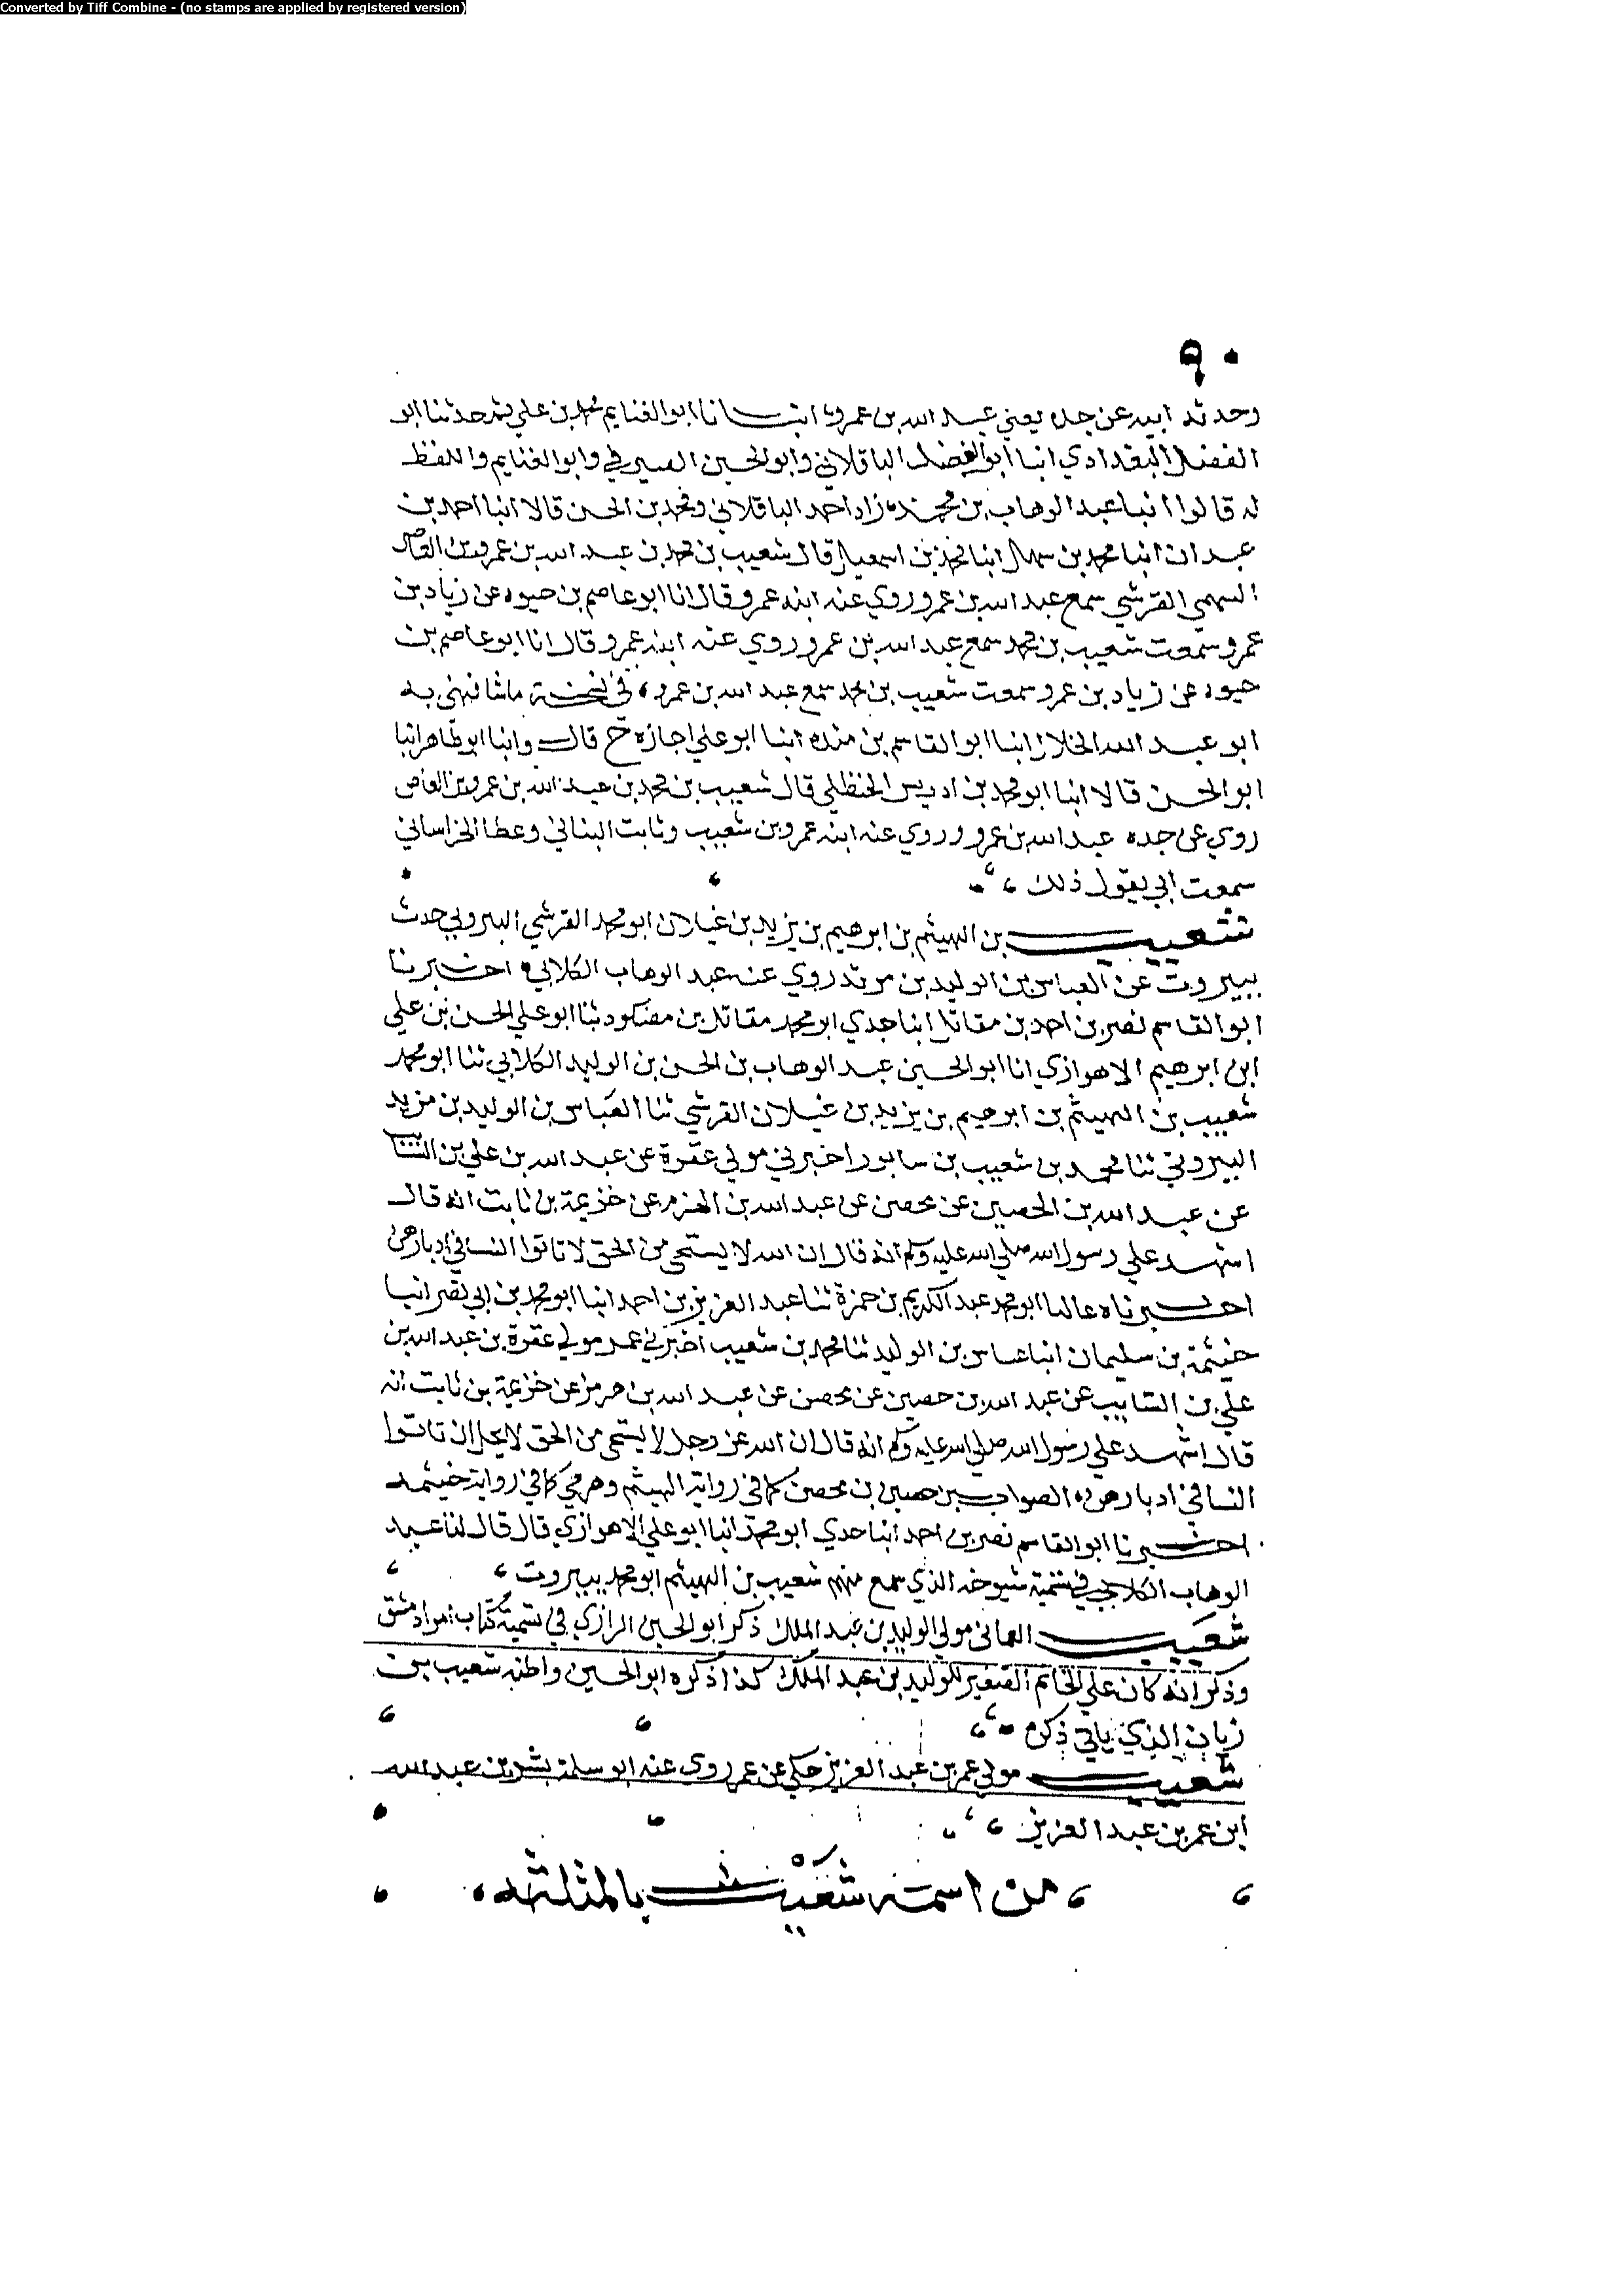 Converted by Tiff Combine - (no stamps are applied by registered version)
٩٠
وحديثه ابيه عن جده يعني عبد الله بن عمرو، انبانا ابو الغنايم محمد بن علي ثم حدثنا ابو
الفضل البغدادي انبا ابو الفضل الباقلاني وابو الحسين الصيرفي وابو الغنايم واللفظ
له قالوا انبا عبد الوهاب بن محمد زاد احمد الباقلاني ومحمد بن الحسن قالا انبا احمد بن
عبدان انبا محمد بن سهل انبا محمد بن اسمعيل قال شعيب بن محمد بن عبد الله بن عمرو بن العاص
السهمي القرشي سمع عبد الله بن عمرو روي عنه ابنه عمرو وقال انا ابو عاصم بن حيوه عن زياد بن
عمرو سمعت شعيب بن محمد سمع عبد الله بن عمرو روي عنه ابنه عمرو وقال انا ابو عاصم بن
حيوه عن زياد بن عمرو سمعت شعيب بن محمد سمع عبد الله بن عمرو، في نسخة ما شافهني به
ابو عبد الله الخلال انبا ابو القاسم بن منده انبا ابو علي اجازه ح قال وانبا ابو طاهر انبا
ابو الحسن قالا انبا ابو محمد بن ادريس الحنظلي قال شعيب بن محمد بن عبد الله بن عمرو بن العاص
روي عن جده عبد الله بن عمرو وروي عنه ابنه عمرو بن شعيب وثابت البناني وعطا الخراساني
سمعت ابي يقول ذلك
شعيب بن الهيثم بن ابرهيم بن يزيد بن غيلان ابو محمد القرشي البيروتي حدث
ببيروت عن العباس بن الوليد بن مرتد روي عنه عبد الوهاب الكلابي اخبرنا
ابو القاسم نصر بن احمد بن مقاتل انبا جدي ابو محمد مقاتل بن مضكود ثنا ابو علي الحسن بن علي
ابن ابرهيم الاهوازي انا ابو الحسين عبد الوهاب بن الحسن بن الوليد الكلابي ثنا ابو محمد
شعيب بن الهيثم بن ابرهيم بن يزيد بن غيلان القرشي ثنا العباس بن الوليد بن مزيد
البيروتي ثنا محمد بن شعيب بن سابور اخبرني مولي عفرة عن عبد الله بن علي بن السا
عن عبد الله بن الحصين عن محصن عن عبد الله بن الهزم عن خزيمة بن ثابت انه قال
اشهد علي رسول الله صلي الله عليه وسلم انه قال ان الله لا يستحي من الحق لا تاتوا النسا في ادبارهن
اخبرناه عاليا ابو محمد عبد الكريم بن حمزة ثنا عبد العزيز بن احمد انبا ابو محمد بن ابي نصر انبا
خيثمة بن سليمان انبا عباس بن الوليد ثنا محمد بن شعيب اخبرني عمر مولي عفرة بن عبد الله بن
علي بن السايب عن عبد الله بن حصين عن محصن عن عبد الله بن هرمز عن خزيمة بن ثابت انه
قال اشهد علي رسول الله صلي الله عليه وسلم انه قال ان الله عز وجل لا يستحي من الحق لا يحل ان تاتوا
النسا في ادبارهن، الصواب حصين بن محصن كما في رواية الهيثم وهرمي كما في رواية خيثمه
اخبرنا ابو القاسم نصر بن احمد انبا جدي ابو محمد انبا ابو علي الاهوازي قال قال لنا عبد
الوهاب الكلابي في تسمية شيوخه الذي سمع منهم شعيب بن الهيثم ابو محمد ببيروت
شعيب العماني مولي الوليد بن عبد الملك ذكر ابو الحسين الرازي في تسمية كتاب امرا دمشق
وذكر انه كان علي الخاتم الصغير للوليد بن عبد الملك كذا ذكره ابو الحسين واظنه شعيب بن
زبان الذي ياتي ذكره
شعيب مولي عمر بن عبد العزيز حكي عن عمر روي عنه ابو سلمة بشر بن عبد الله
ابن عمر بن عبد العزيز
من اسمه شعيث بالمثلثه